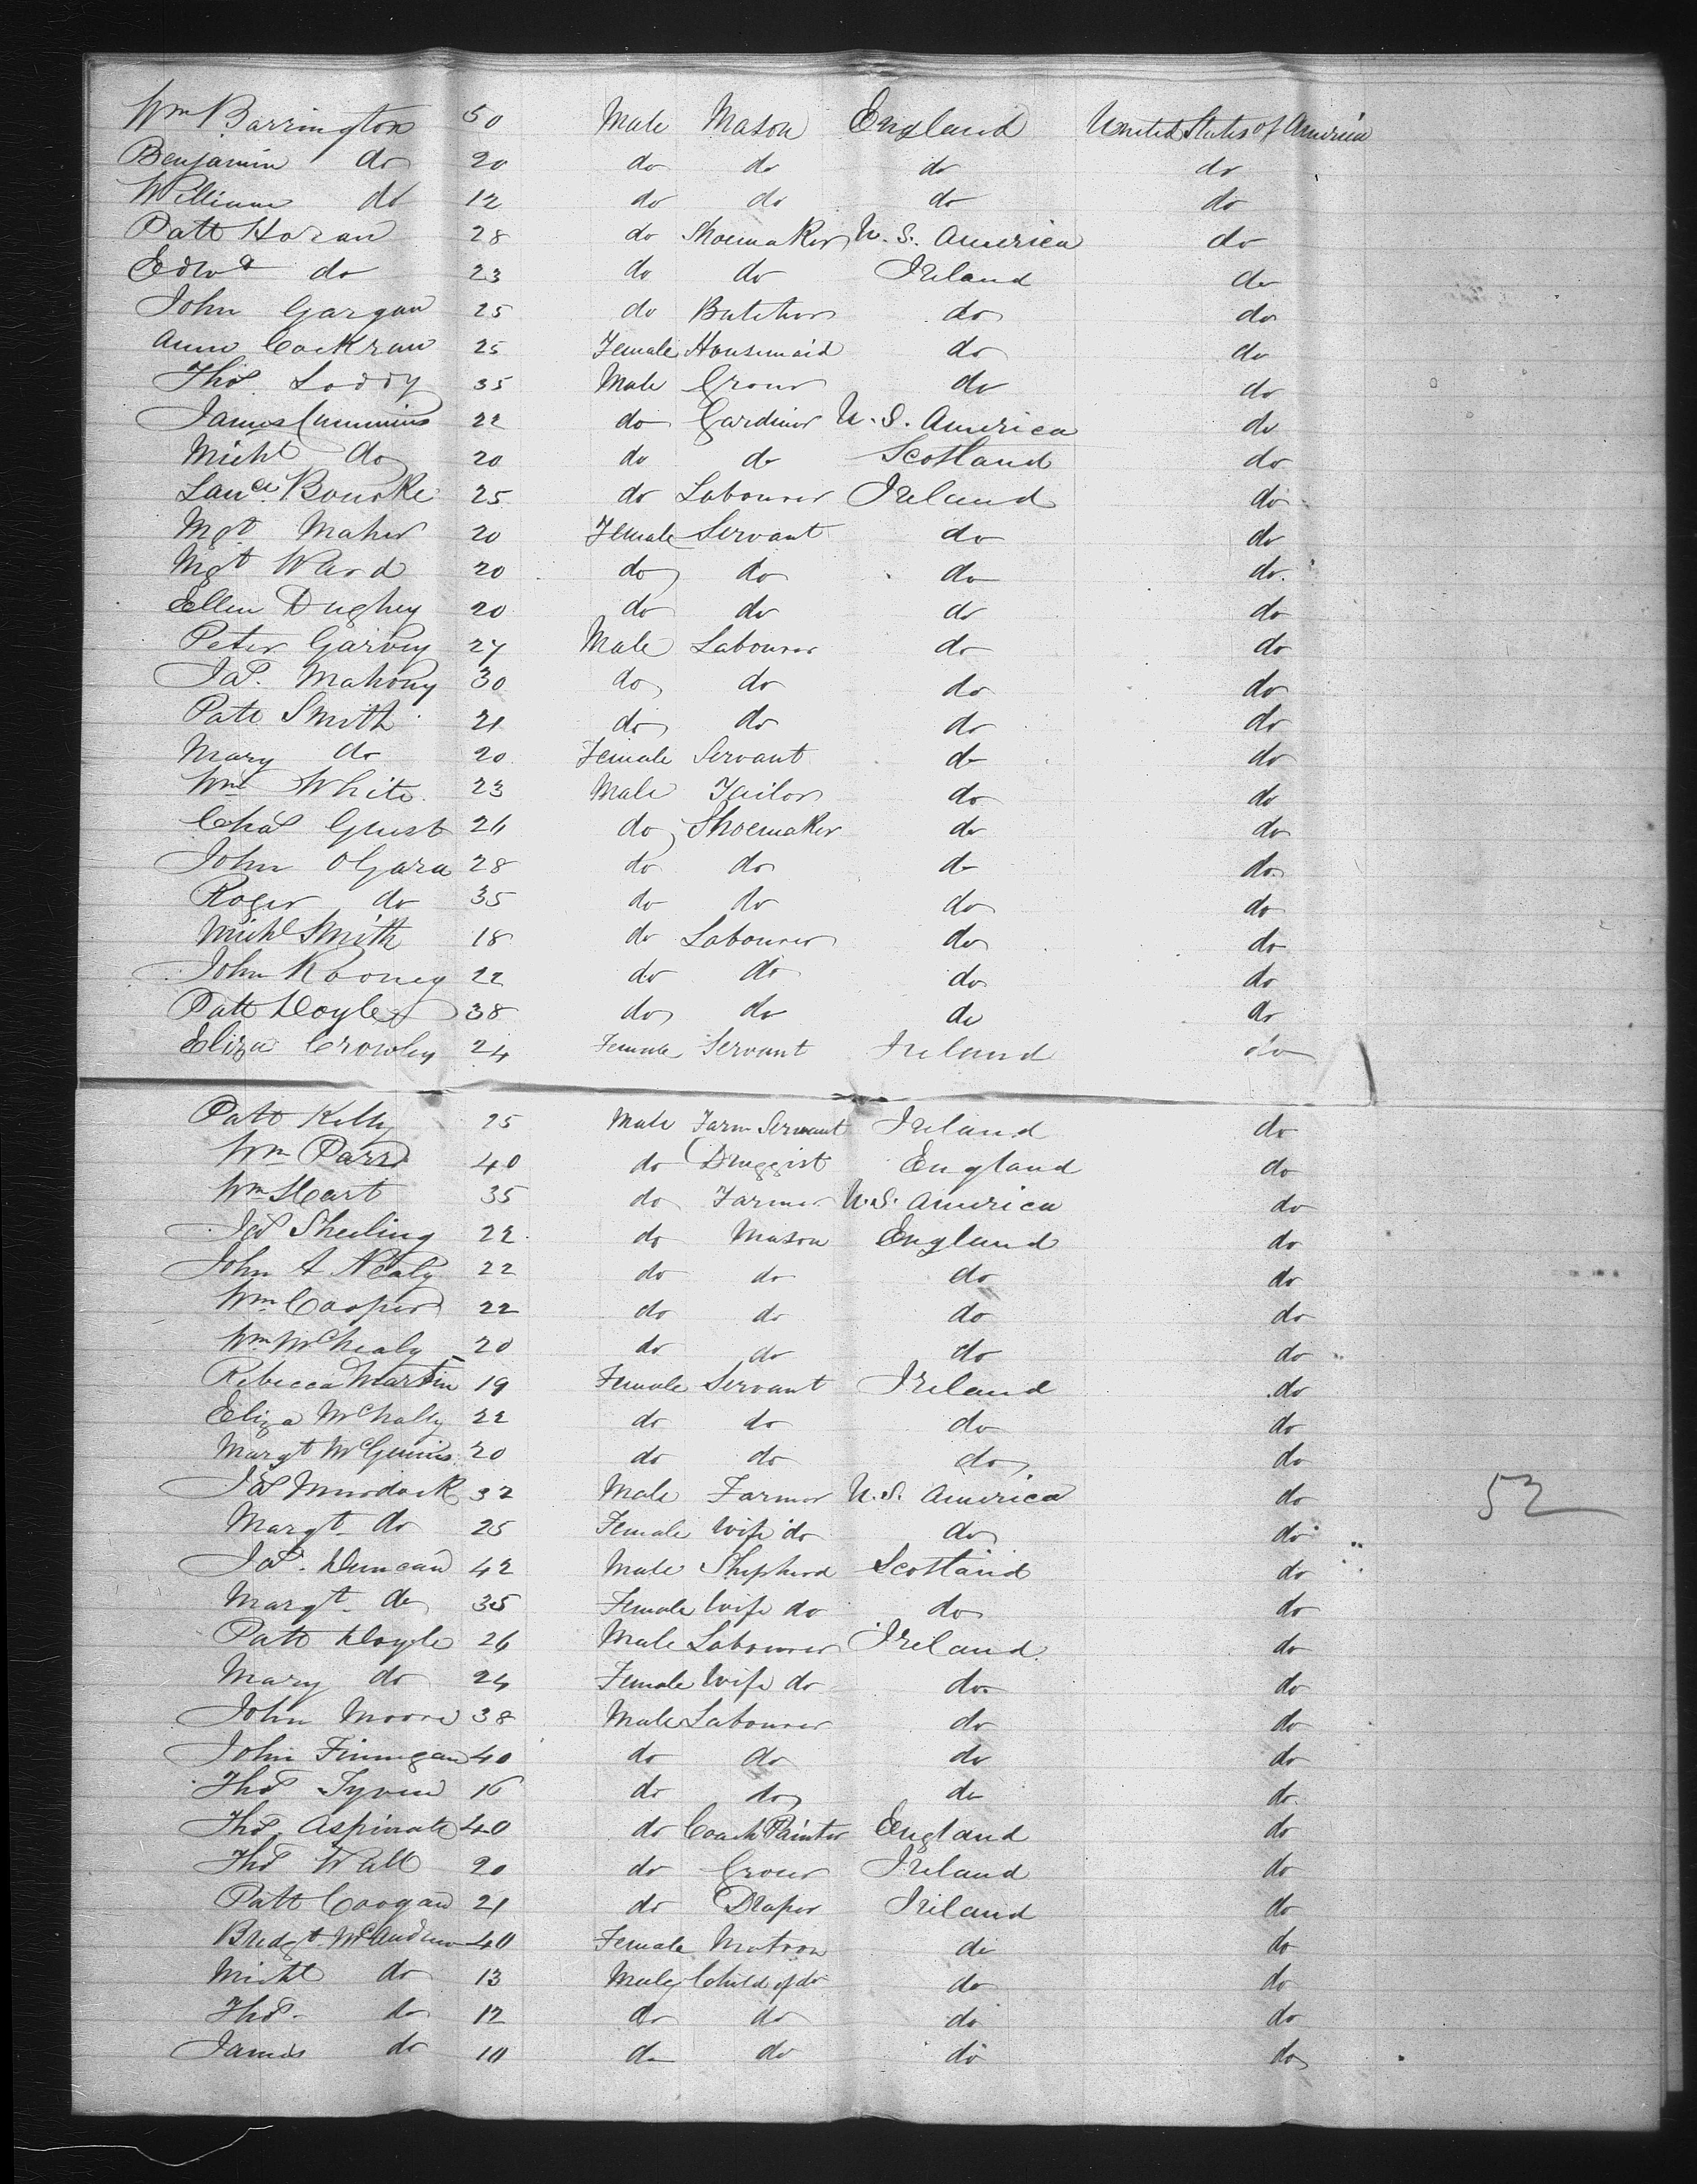 Wm Barrington 50 Male Mason England United States of America
Benjamin do 20 do do do do
William do 12 do do do do
Patt Horan 28 do Shoemaker U. S. America do
Edwd do 23 do do Ireland do
John Gargan 25 do Butcher do do
Anne Cockran 25 Female Housemaid do do
Thos Loddy 35 Male Grocer do do
James Cummins 22 do Gardiner U. S. America do
Michl do 20 do do Scotland do
Lance Bourke 25 do Labourer Ireland do
Mgt Maher 20 Female Servant do do
Mgt Ward 20 do do do do
Ellen Dughey 20 do do do do
Peter Garvey 27 Male Labourer do do
Jas. Mahony 30 do do do do
Patt Smith 21 do do do do
Mary do 20 Female Servant do do
Wm White 23 Male Tailor do do
Chas Guist 26 do Shoemaker do do
John OGara 28 do do do do
Roger do 35 do do do do
Michl Smith 18 do Labourer do do
John Rooney 22 do do do do
Patt Doyle 38 do do do do
Eliza Crowley 24 Female Servant Ireland do
Patt Kelly 25 Male Farm Servant Ireland do
Wm Parr 40 do Druggist England do
Wm Hart 35 do Farmer U.S. America do
Jas Sheeling 22 do Mason England do
John A Nealy 22 do do do do
Wm Cooper 22 do do do do
Wm McNealy 20 do do do do
Rebecca Martin 19 Female Servant Ireland do
Eliza McNally 22 do do do do
Margt McGuinis 20 do do do do
Jas Murdock 32 Male Farmer U.S. America do 52
Margt do 25 Female Wife do do do
Jas. Duncan 42 Male Shepherd Scotland do
Margt do 35 Female Wife do do do
Patt Doyle 26 Male Labourer Ireland do
Mary do 24 Female Wife do do do
John Moore 38 Male Labourer do do
John Finnigan 40 do do do do
Thos 16 do do do do
Thos Aspinall 40 do Coach Painter England do
Thos Wall 20 do Grocer Ireland do
Patt Coogan 21 do Draper Ireland do
Bridgt McAndrew 40 Female Matron do do
Michl do 13 Male Child of do do do
Thos do 12 do do do do
James do 10 do do do do